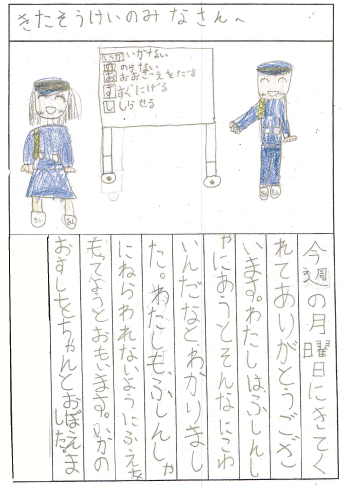 きたそうけいのみなさんへ
いか いかない
の のらない
お おおごえをだす
す すぐにげる
し しらせる
今週の月曜日にきてく
れてありがとうござ
います。わたしはふしんし
ゃにあうとそんなにこわ
いんだなと、わかりまし
た。わたしも、ふしんしゃ
にねらわれないようにぶえを
もってようとおもいます。いかの
おすしをちゃんとおぼえま
した。